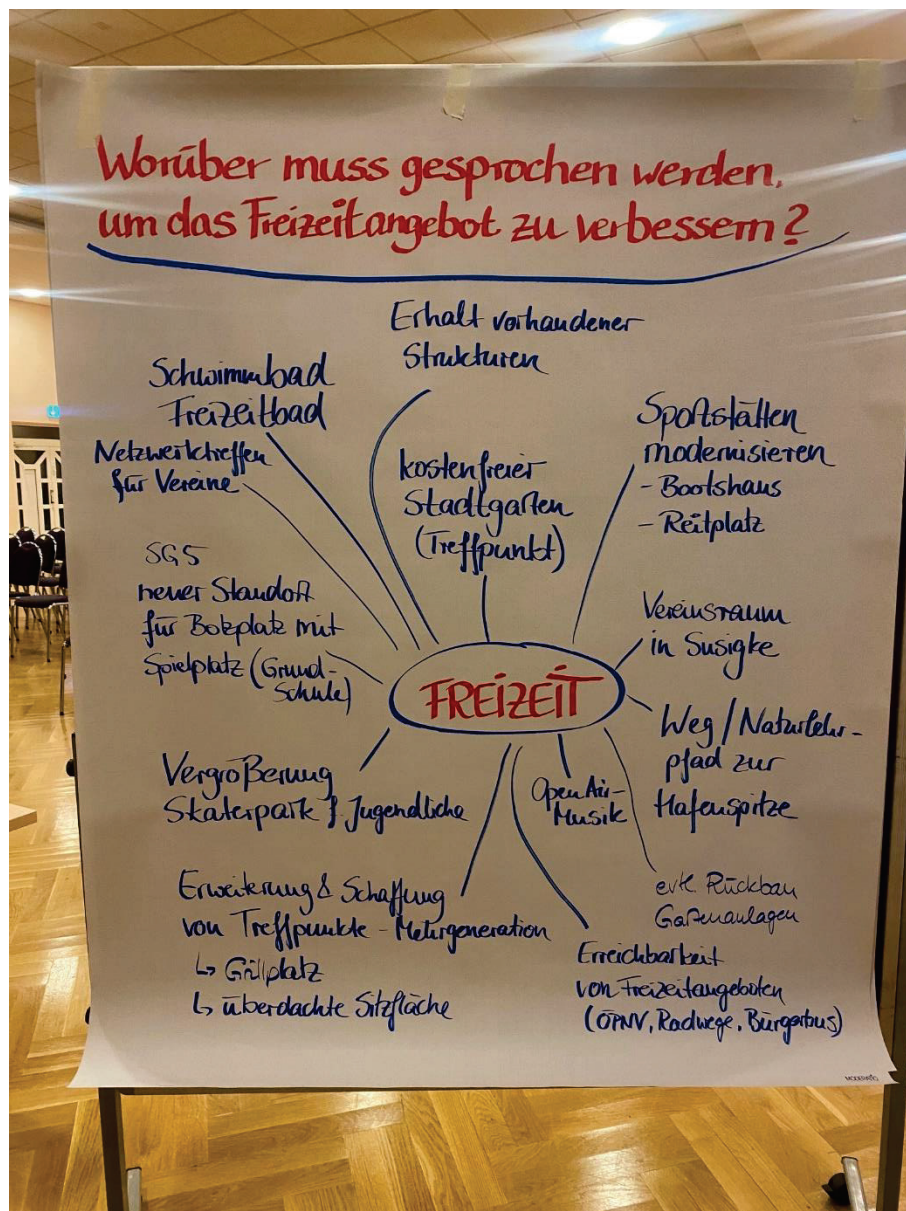 Worüber muss gesprochen werden,
um das Freizeitangebot zu verbessern?
Erhalt vorhandener
Strukturen
Schwimmbad
Freizeitbad
Netzwerktreffen
für Vereine
kostenfreier
Stadtgarten
(Treffpunkt)
Sportstätten
modernisieren
- Bootshaus
- Reitplatz
SG5
neuer Standort
für Bolzplatz mit
Spielplatz (Grund-
schule)
Vereinsraum
in Susigke
FREIZEIT
Weg / Naturlehr-
pfad zur
Hafenspitze
Vergrößerung
Skaterpark f. Jugendliche
Open Air-
Musik
Erweiterung & Schaffung
von Treffpunkte - Mehrgeneration
↳ Grillplatz
↳ überdachte Sitzfläche
evtl. Rückbau
Gartenanlagen
Erreichbarkeit
von Freizeitangeboten
(ÖPNV, Radwege, Bürgerbus)